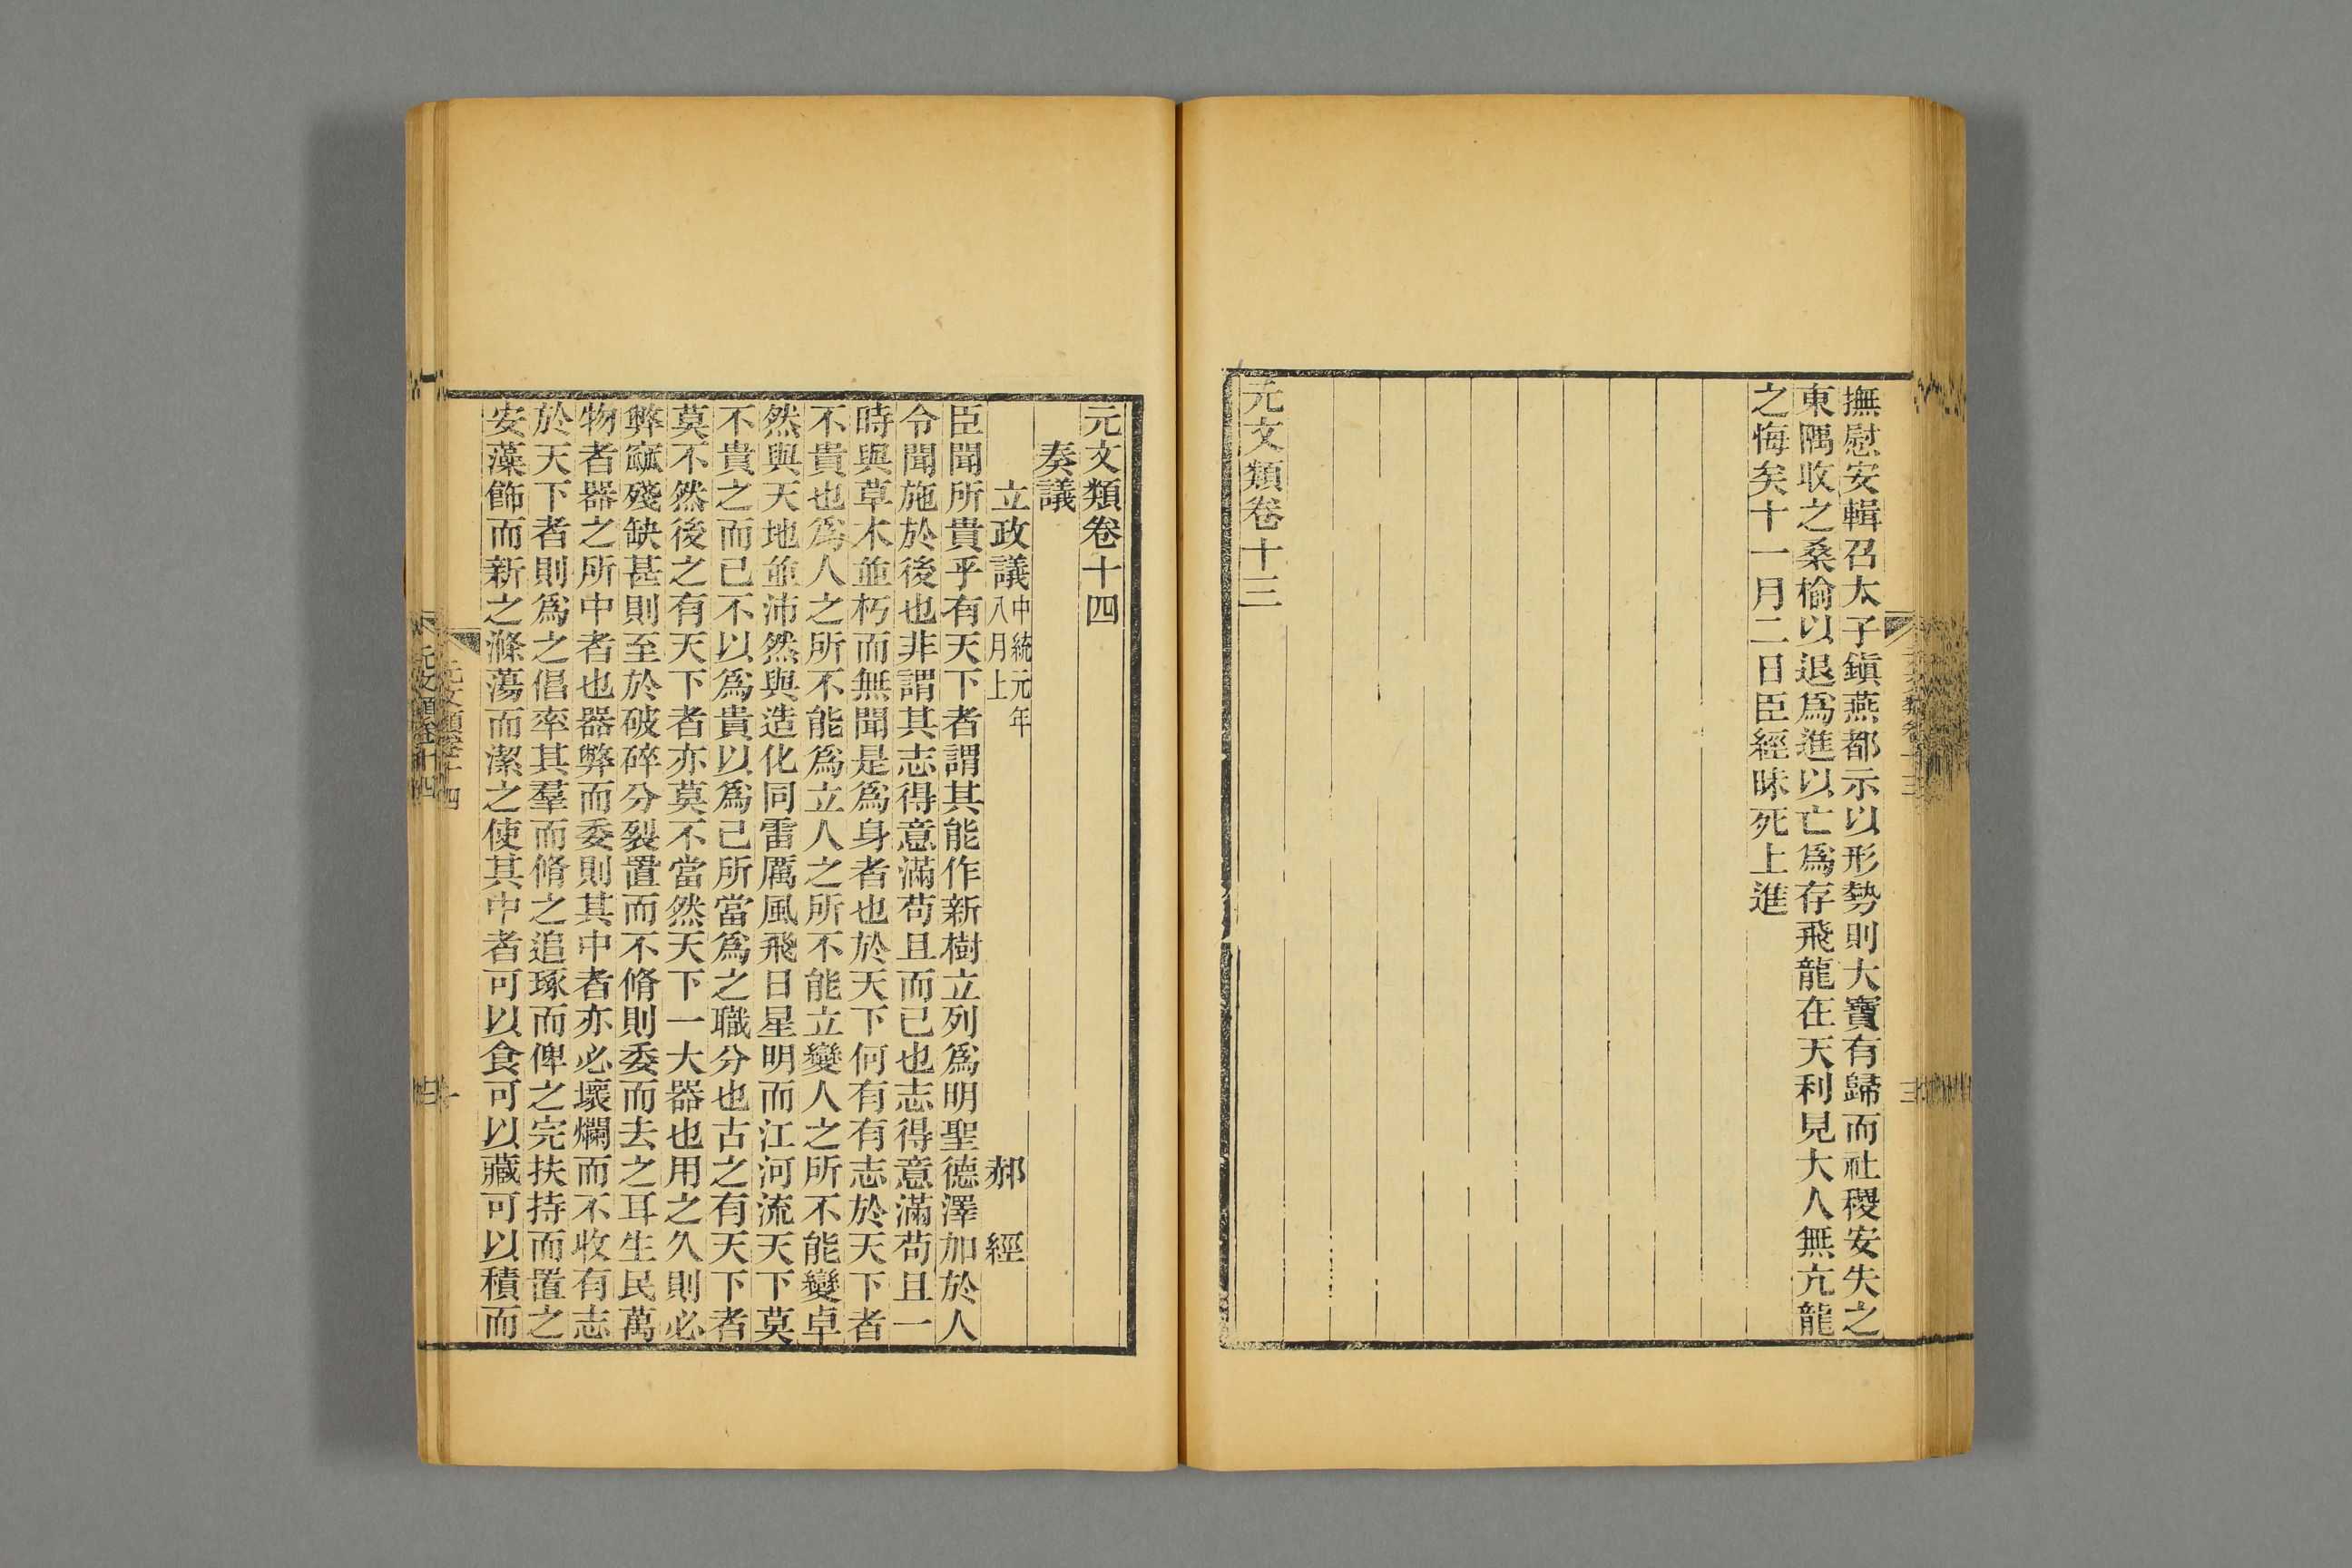 撫慰安輯召太子鎭燕都示以形勢則大寶有歸而社稷安失之
東隅收之桑榆以退爲進以亡爲存飛龍在天利見大人無亢龍
之悔矣十一月二日臣經昧死上進
元文類卷十三
元文類卷十四
奏議
立政議中統元年八月上 郝經
臣聞所貴乎有天下者謂其能作新樹立列爲明聖德澤加於人
令聞施於後也非謂其志得意滿苟且而已也志得意滿苟且一
時與草木並朽而無聞是爲身者也於天下何有有志於天下者
不貴也爲人之所不能爲立人之所不能立變人之所不能變卓
然與天地並沛然與造化同雷厲風飛日星明而江河流天下莫
不貴之而已不以爲貴以爲己所當爲之職分也古之有天下者
莫不然後之有天下者亦莫不當然天下一大器也用之久則必
弊窳殘缺甚則至於破碎分裂置而不脩則委而去之耳生民萬
物者器之所中者也器弊而委則其中者亦必壞爛而不收有志
於天下者則爲之倡率其羣而脩之追琢而俾之完扶持而置之
安藻飾而新之滌蕩而潔之使其中者可以食可以藏可以積而
元文類卷十四